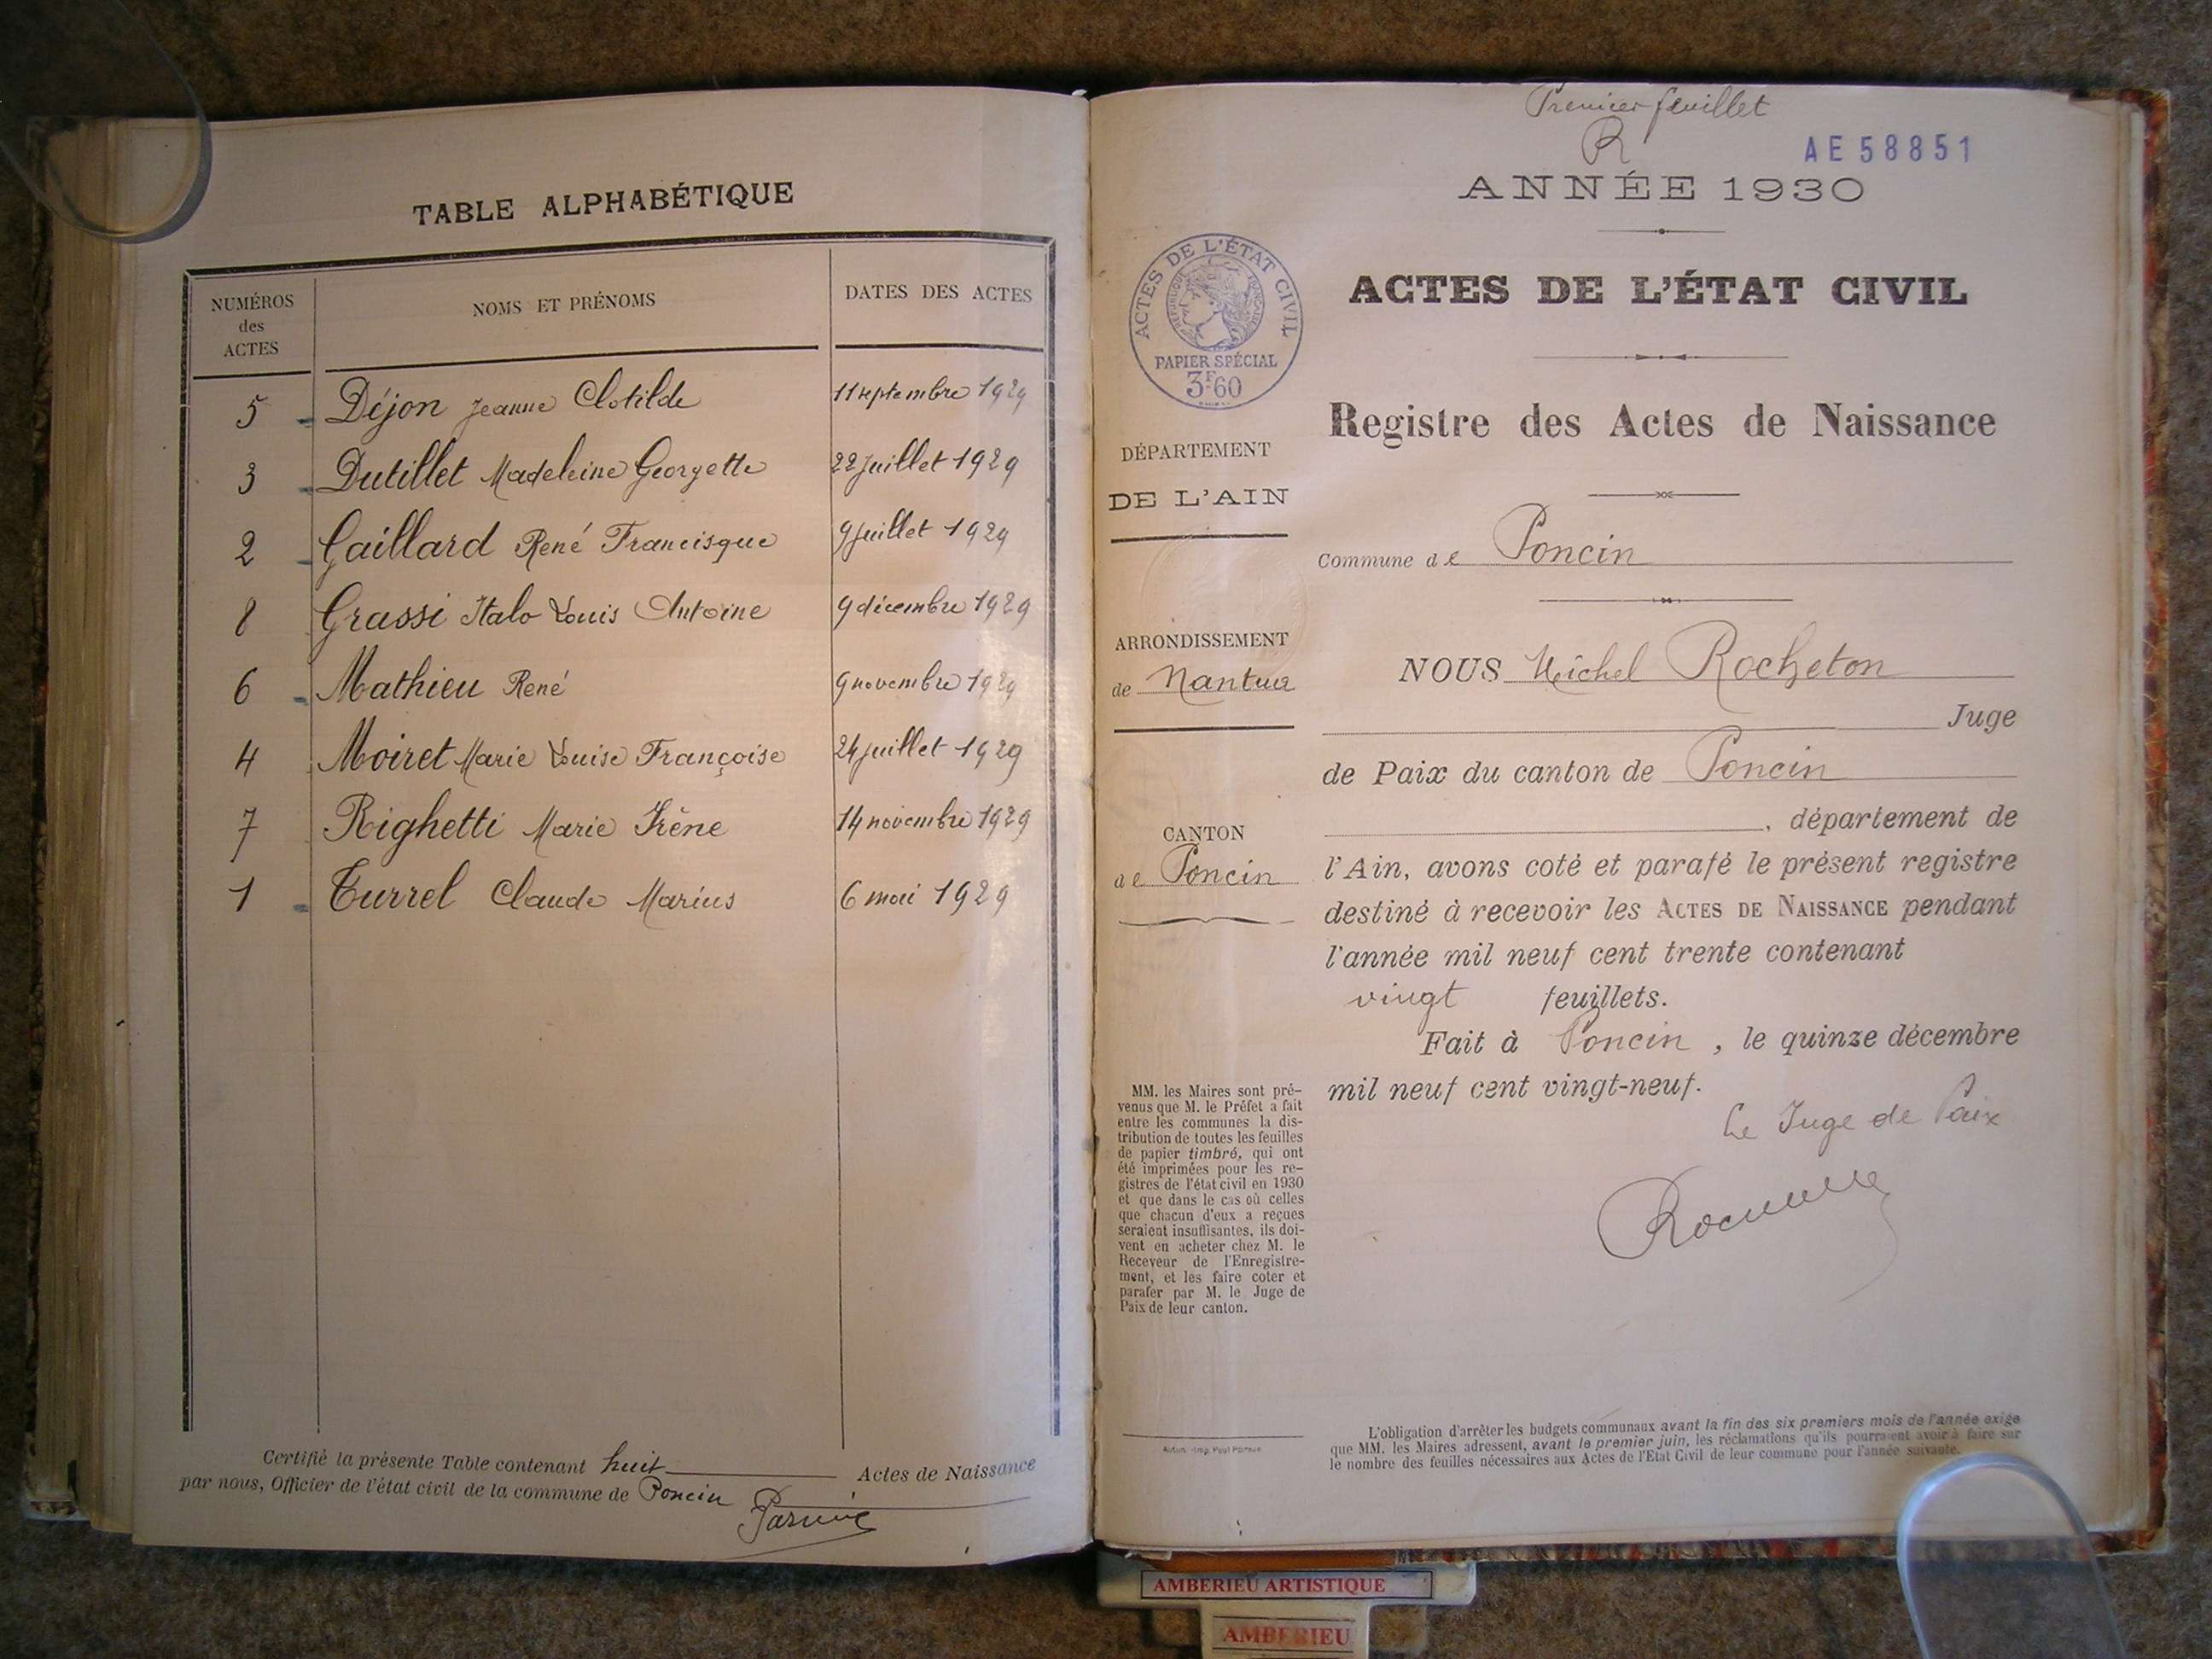 TABLE ALPHABÉTIQUE
NUMÉROS des ACTES NOMS ET PRÉNOMS DATES DES ACTES
5 Déjon Jeanne Clotilde 11 septembre 1929
3 Dutillet Madeleine Georgette 22 juillet 1929
2 Gaillard René Francisque 9 juillet 1929
8 Grassi Italo Louis Antoine 9 décembre 1929
6 Mathieu René 9 novembre 1929
4 Moiret Marie Louise Françoise 24 juillet 1929
7 Righetti Marie Irène 14 novembre 1929
1 Turrel Claude Marius 6 mai 1929
Certifié la présente Table contenant huit Actes de Naissance
par nous, Officier de l'état civil de la commune de Poncin
Premier feuillet
R
AE 58851
ANNÉE 1930
ACTES DE L'ÉTAT CIVIL
RÉPUBLIQUE FRANÇAISE
PAPIER SPÉCIAL
3F60
ACTES DE L'ÉTAT CIVIL
Registre des Actes de Naissance
DÉPARTEMENT
DE L'AIN
Commune de Poncin
ARRONDISSEMENT
de Nantua
CANTON
de Poncin
NOUS Michel Rocheton
Juge
de Paix du canton de Poncin
, département de
l'Ain, avons coté et parafé le présent registre
destiné à recevoir les ACTES DE NAISSANCE pendant
l'année mil neuf cent trente contenant
vingt feuillets.
Fait à Poncin, le quinze décembre
mil neuf cent vingt-neuf.
Le Juge de Paix
MM. les Maires sont pré-
venus que M. le Préfet a fait
entre les communes la dis-
tribution de toutes les feuilles
de papier timbré, qui ont
été imprimées pour les re-
gistres de l'état civil en 1930
et que dans le cas où celles
que chacun d'eux a reçues
seraient insuffisantes, ils doi-
vent en acheter chez M. le
Receveur de l'Enregistre-
ment, et les faire coter et
parafer par M. le Juge de
Paix de leur canton.
L'obligation d'arrêter les budgets communaux avant la fin des six premiers mois de l'année exige
que MM. les Maires adressent, avant le premier juin, les réclamations qu'ils pourraient avoir à faire sur
le nombre des feuilles nécessaires aux Actes de l'Etat Civil de leur commune pour l'année suivante.
AMBERIEU ARTISTIQUE
AMBERIEU